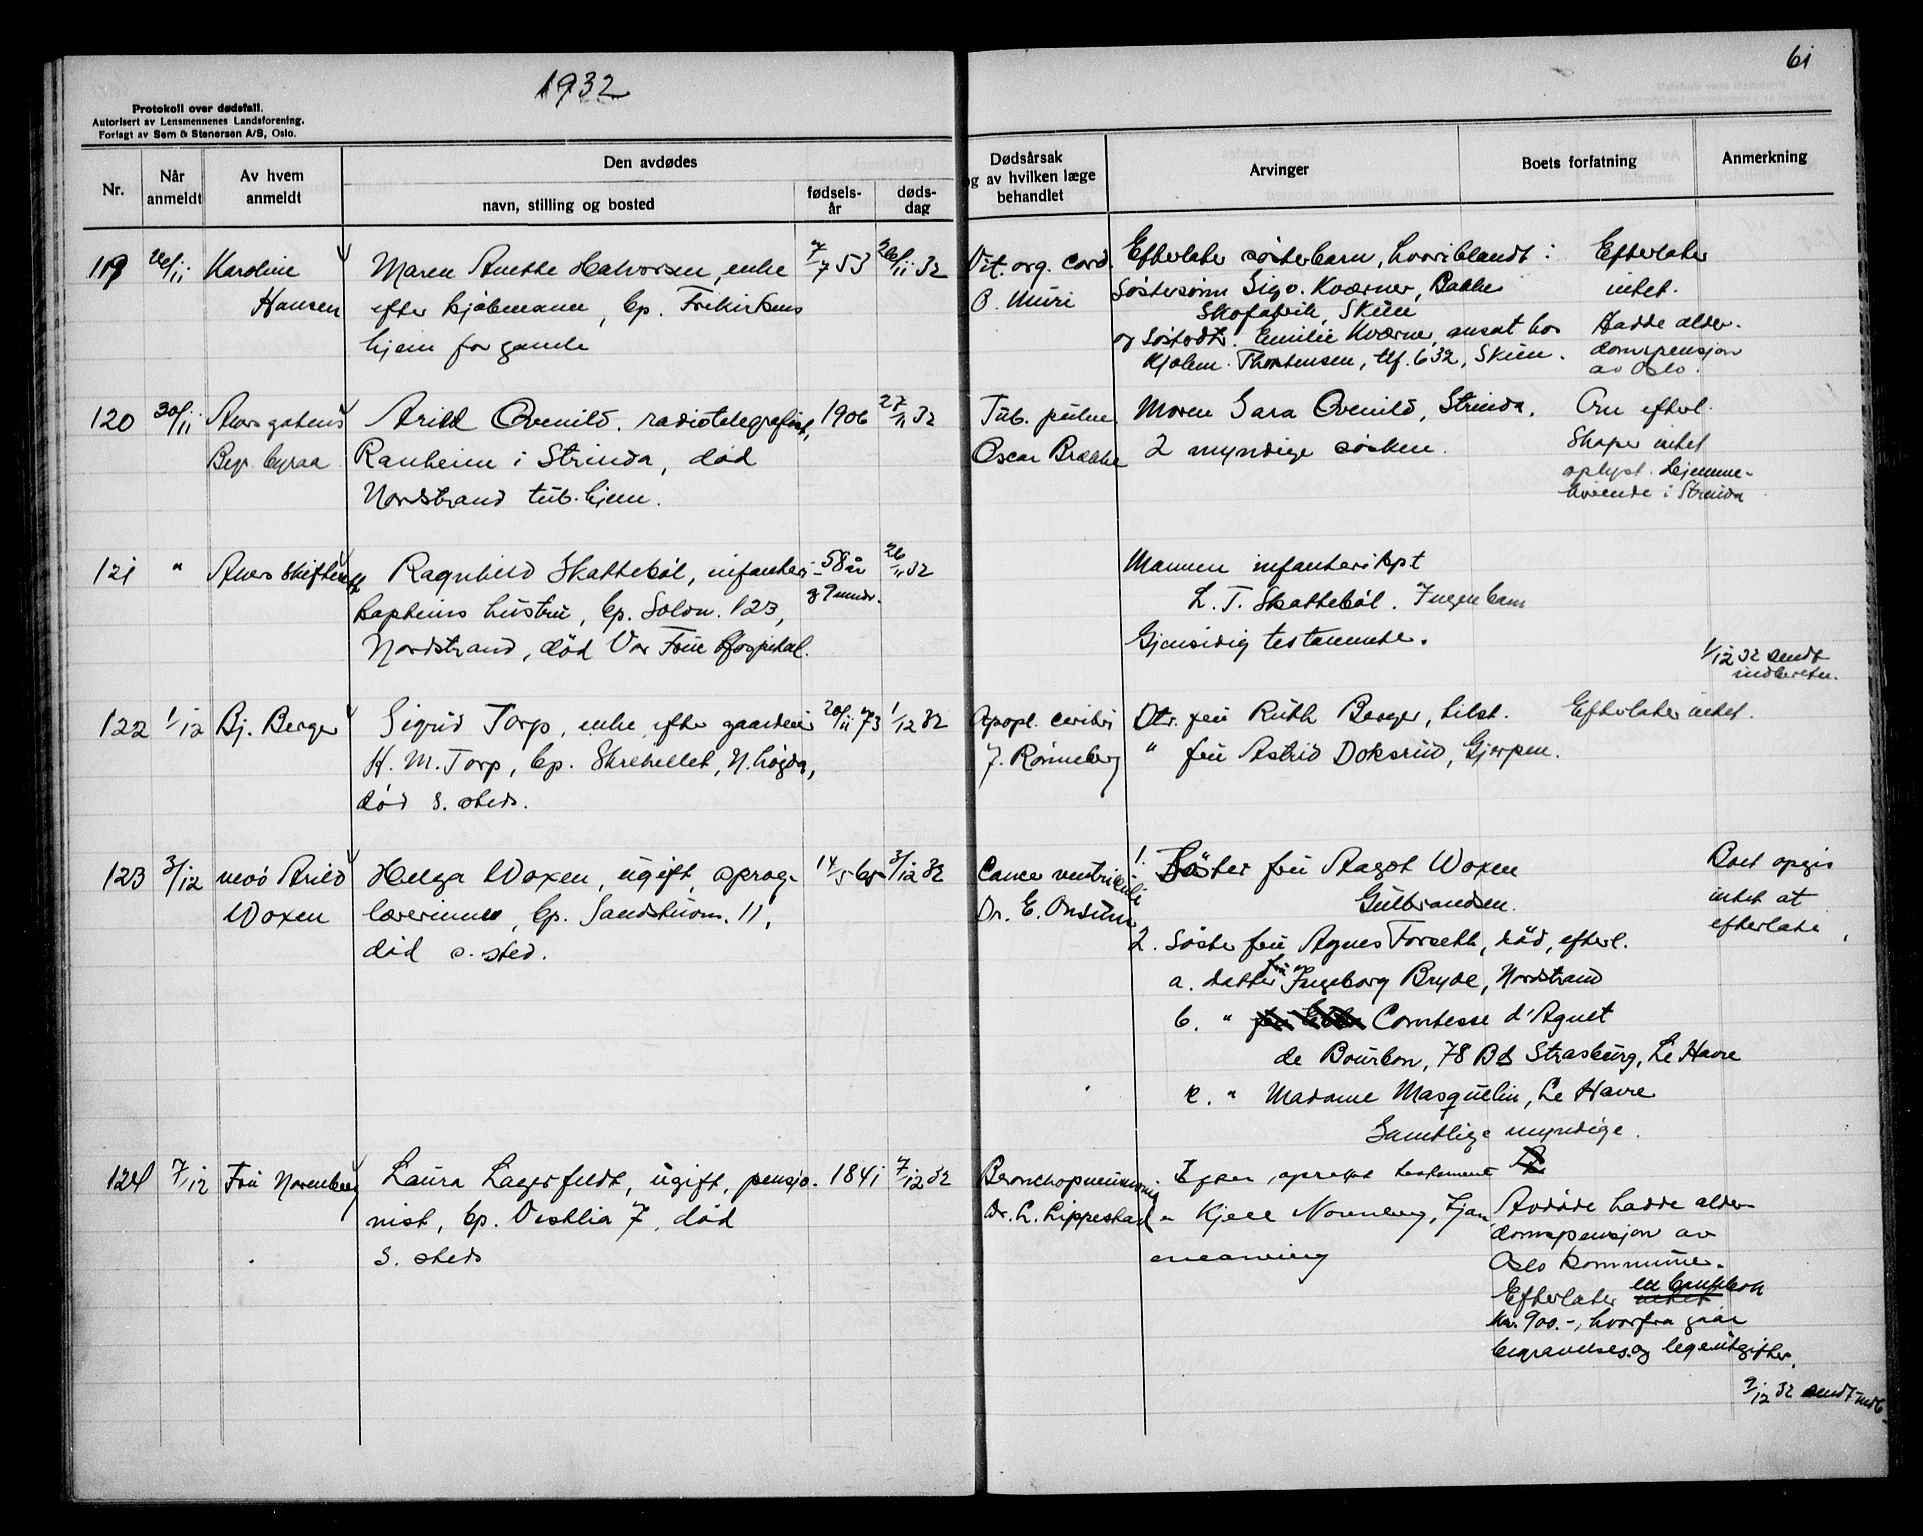 1932
61
Protokoll over dødsfall.
Autorisert av Lensmennenes Landsforening.
Forlagt av Sem & Stenersen A/S, Oslo.
Nr.
Når anmeldt
Av hvem anmeldt
Den avdødes
navn, stilling og bosted
fødsels-år
døds-dag
Dødsårsak
og av hvilken læge
behandlet
Arvinger
Boets forfatning
Anmerkning
119 26/11 Karoline Hansen
Maren Anette Halvorsen, enke
efter kjøbmann, bp. Frikirkens
hjem for gamle
7/7 53 26/11 32
Vit. org. cord.
O. Muri
Efterlater søsterbarn, hvoriblandt:
Søstersønn Sigv. Kværner, Bakke
Skofabrik, Skien
og Søsterdtr. Emilie Kværner, ansat hos
Kjølem. Thorstensen, tlf. 632, Skien.
Efterlater
intet.
Hadde alder-
domspensjon
av Oslo.
120 30/11 Akersgatens
Begr. byraa
Arild Qvenild, radiotelegrafist,
Ranheim i Strinda, død
Nordstrand tub. hjem.
1906 27/11 32
Tub. pulm.
Oscar Brække
Moren Sara Qvenild, Strinda.
2 myndige søsken.
Om efterl.
skaper intet
oplyst. Hjemme-
hørende i Strinda
121 " Akers skifterett
Ragnhild Skattebøl, infanteri-
kapteins hustru, bp. Solvn. 123,
Nordstrand, død Vor Frue Hospital.
58 år
og 9 mndr.
26/11 32
Mannen infanterikpt
L. T. Skattebøl. Ingen barn
Gjensidig testamente.
1/12 32 sendt
indberetn.
122 1/12 Bj. Berger
Sigrid Torp, enke efter gaardeier
H. M. Torp, bp. Skrebillet, N. høgda,
død s. steds.
20/11 73 1/12 32
Apopl. cerebri
J. Rønneberg
Dtr. fru Ruth Berger, tilst.
" fru Astrid Doksrud, Gjerpen.
Efterlater intet.
123 3/12 nevø Arild
Woxen
Helga Woxen, ugift, sprog-
lærerinne, bp. Sandstuvn. 11,
død s. sted.
14/5 65 3/12 32
Cancer ventriculi
Dr. E. Onsum
1. Søster fru Aagot Woxen
Gulbrandsen.
2. Søster fru Agnes Forseth, død, efterl.
a. datter fru Ingeborg Bryde, Nordstrand
b. " Comtesse d'Agnet
de Bourbon, 78 Bd Strasburg, Le Havre
c. " Madame Masquelin, Le Havre
Samtlige myndige.
Boet opgis
intet at
efterlate
124 7/12 Fru Norenberg
Laura Lagerfeldt, ugift, pensjo-
nist, bp. Vestlia 7, død
s. steds
1841 7/12 32
Bronchopneumonia
Dr. L. Lippestad
Efter oprettet testament
er Kjell Norenberg, Ljan
enearving
Avdøde hadde alder-
domspensjon av
Oslo kommune.
Efterlater intet en bankbok
kr. 900.-, hvorfra gaar
begravelses. og legeutgifter.
9/12 32 sendt indb.